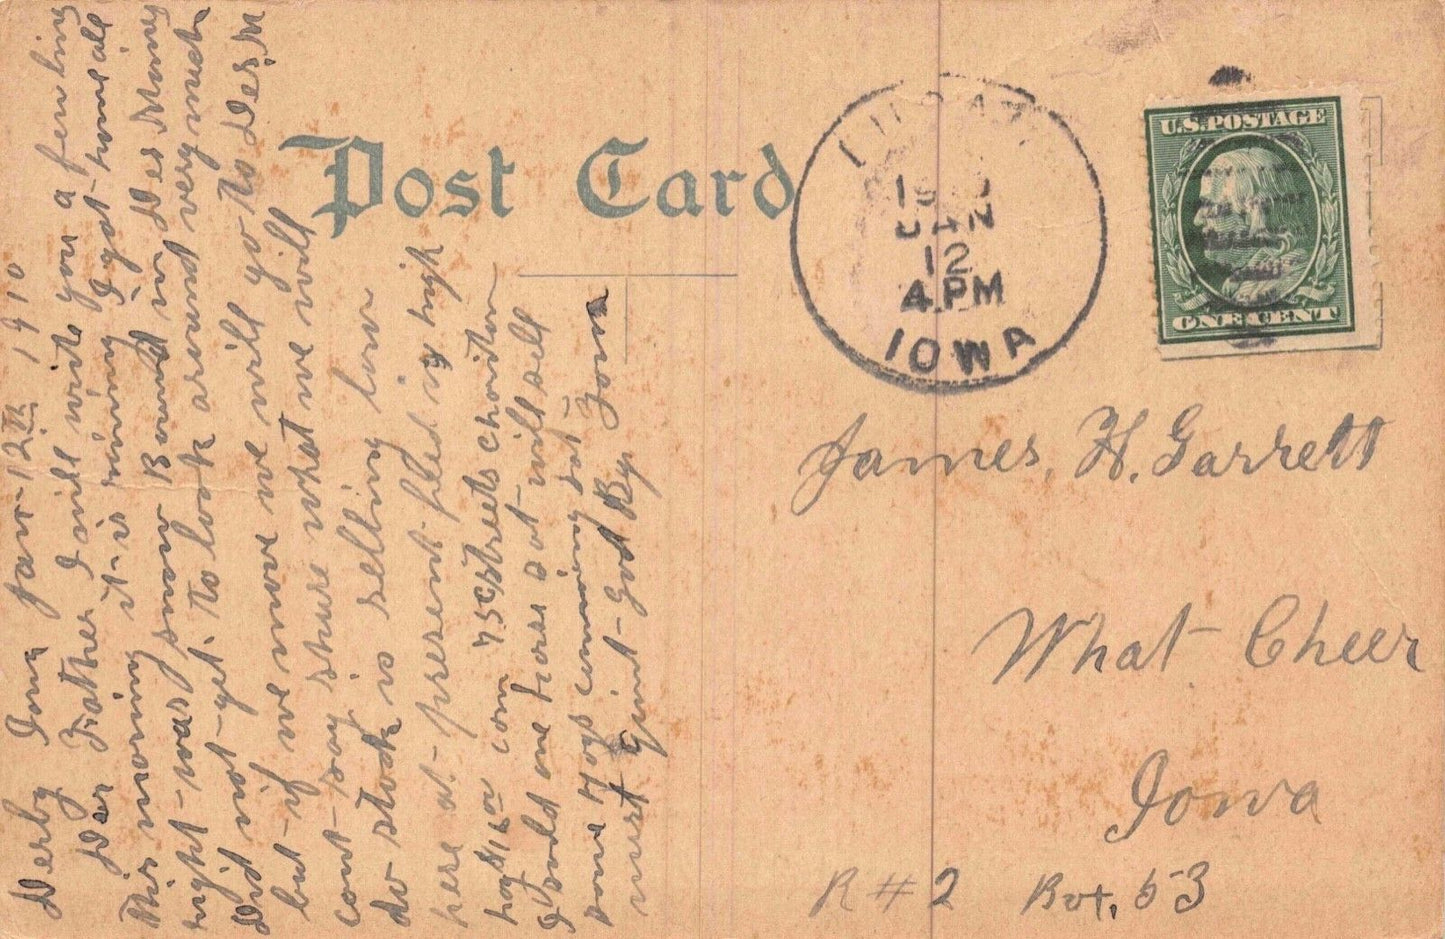 Post Card
1910
JAN
12
4 PM
IOWA
U.S.POSTAGE
ONE CENT
James, H. Garrett
What Cheer
Iowa
R # 2 Box, 53
Derby Iowa Jan 12th 1910
Der Father I will write you a few lins
this morning it is raining I got home all
right was snow Bound in Des Moines
Did not get to look around very much
but if we move we will go to Des M
cant say shure what we will
do stock is selling low
here at present feed is high
hay $15 a corn 75c streets chariton
I sold one horse but will sell
some hogs comming sat
must quit good By